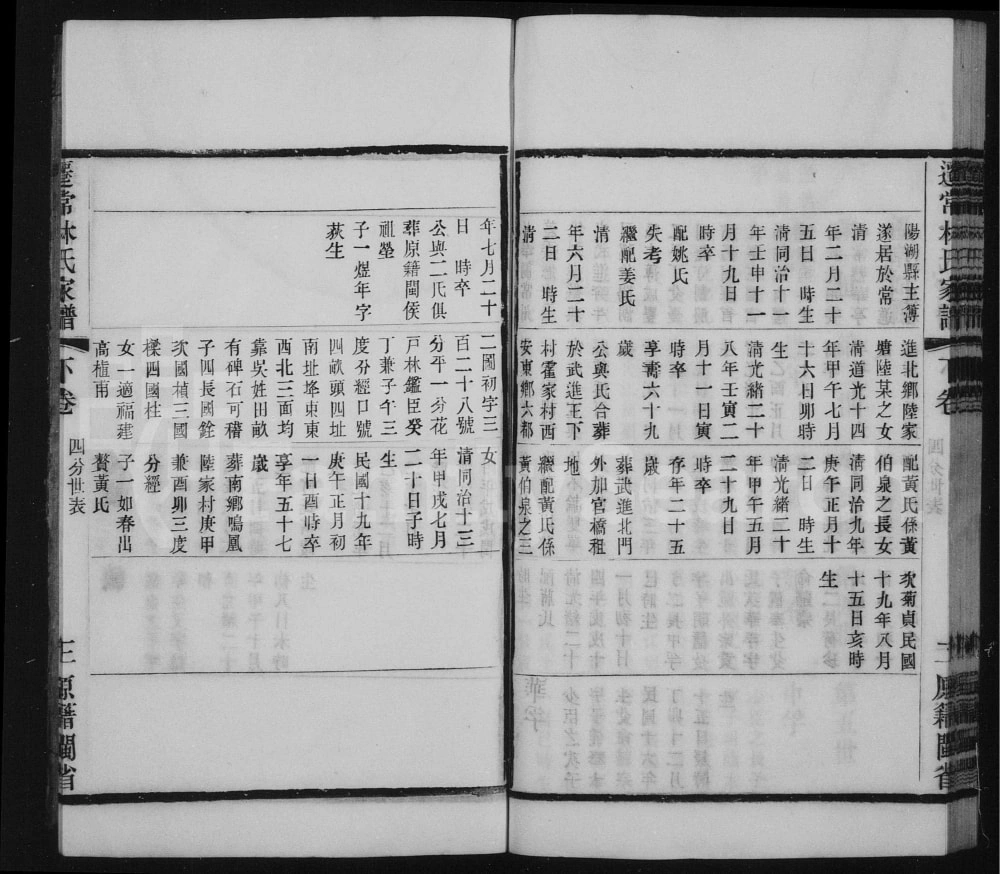 遷常林氏家譜
下卷
四分世表
原籍閩省
陽湖縣主簿
遂居於常
清
年二月二十
五日 時生
清同治十一
年壬申十一
月十九日
時卒
配姚氏
失考
繼配姜氏
清
年六月二十
二日 時生
清
年七月二十
日 時卒
公與二氏俱
葬原籍閩侯
祖塋
子一煜年字
荻生
進北鄉陸家
塘陸某之女
清道光十四
年甲午七月
十六日卯時
生
清光緒二十
八年壬寅二
月十一日寅
時卒
享壽六十九
歲
公與氏合葬
於武進王下
村霍家村西
安東鄉六都
二圖初字三
百二十八號
分平一分花
戶林鑑臣癸
丁兼子午三
度分經口號
四畝頭四址
南址埄東東
西北三面均
靠吳姓田畝
有碑石可稽
子四長國銓
次國楨三國
樑四國柱
女一適福建
高植甫
配黃氏係黃
伯泉之長女
清同治九年
庚午正月十
二日 時生
清光緒二十
年甲午五月
二十九日
時卒
存年二十五
歲
葬武進北門
外加官橋祖
地
繼配黃氏係
黃伯泉之三
女
清同治十三
年甲戌七月
二十日子時
生
民國十九年
庚午正月初
一日酉時卒
享年五十七
歲
葬南鄉鳴鳳
陸家村庚甲
兼酉卯三度
分經
子一如春出
贅黃氏
次菊貞民國
十九年八月
十五日亥時
生
遷常林氏家譜
下卷
四分世表
原籍閩省